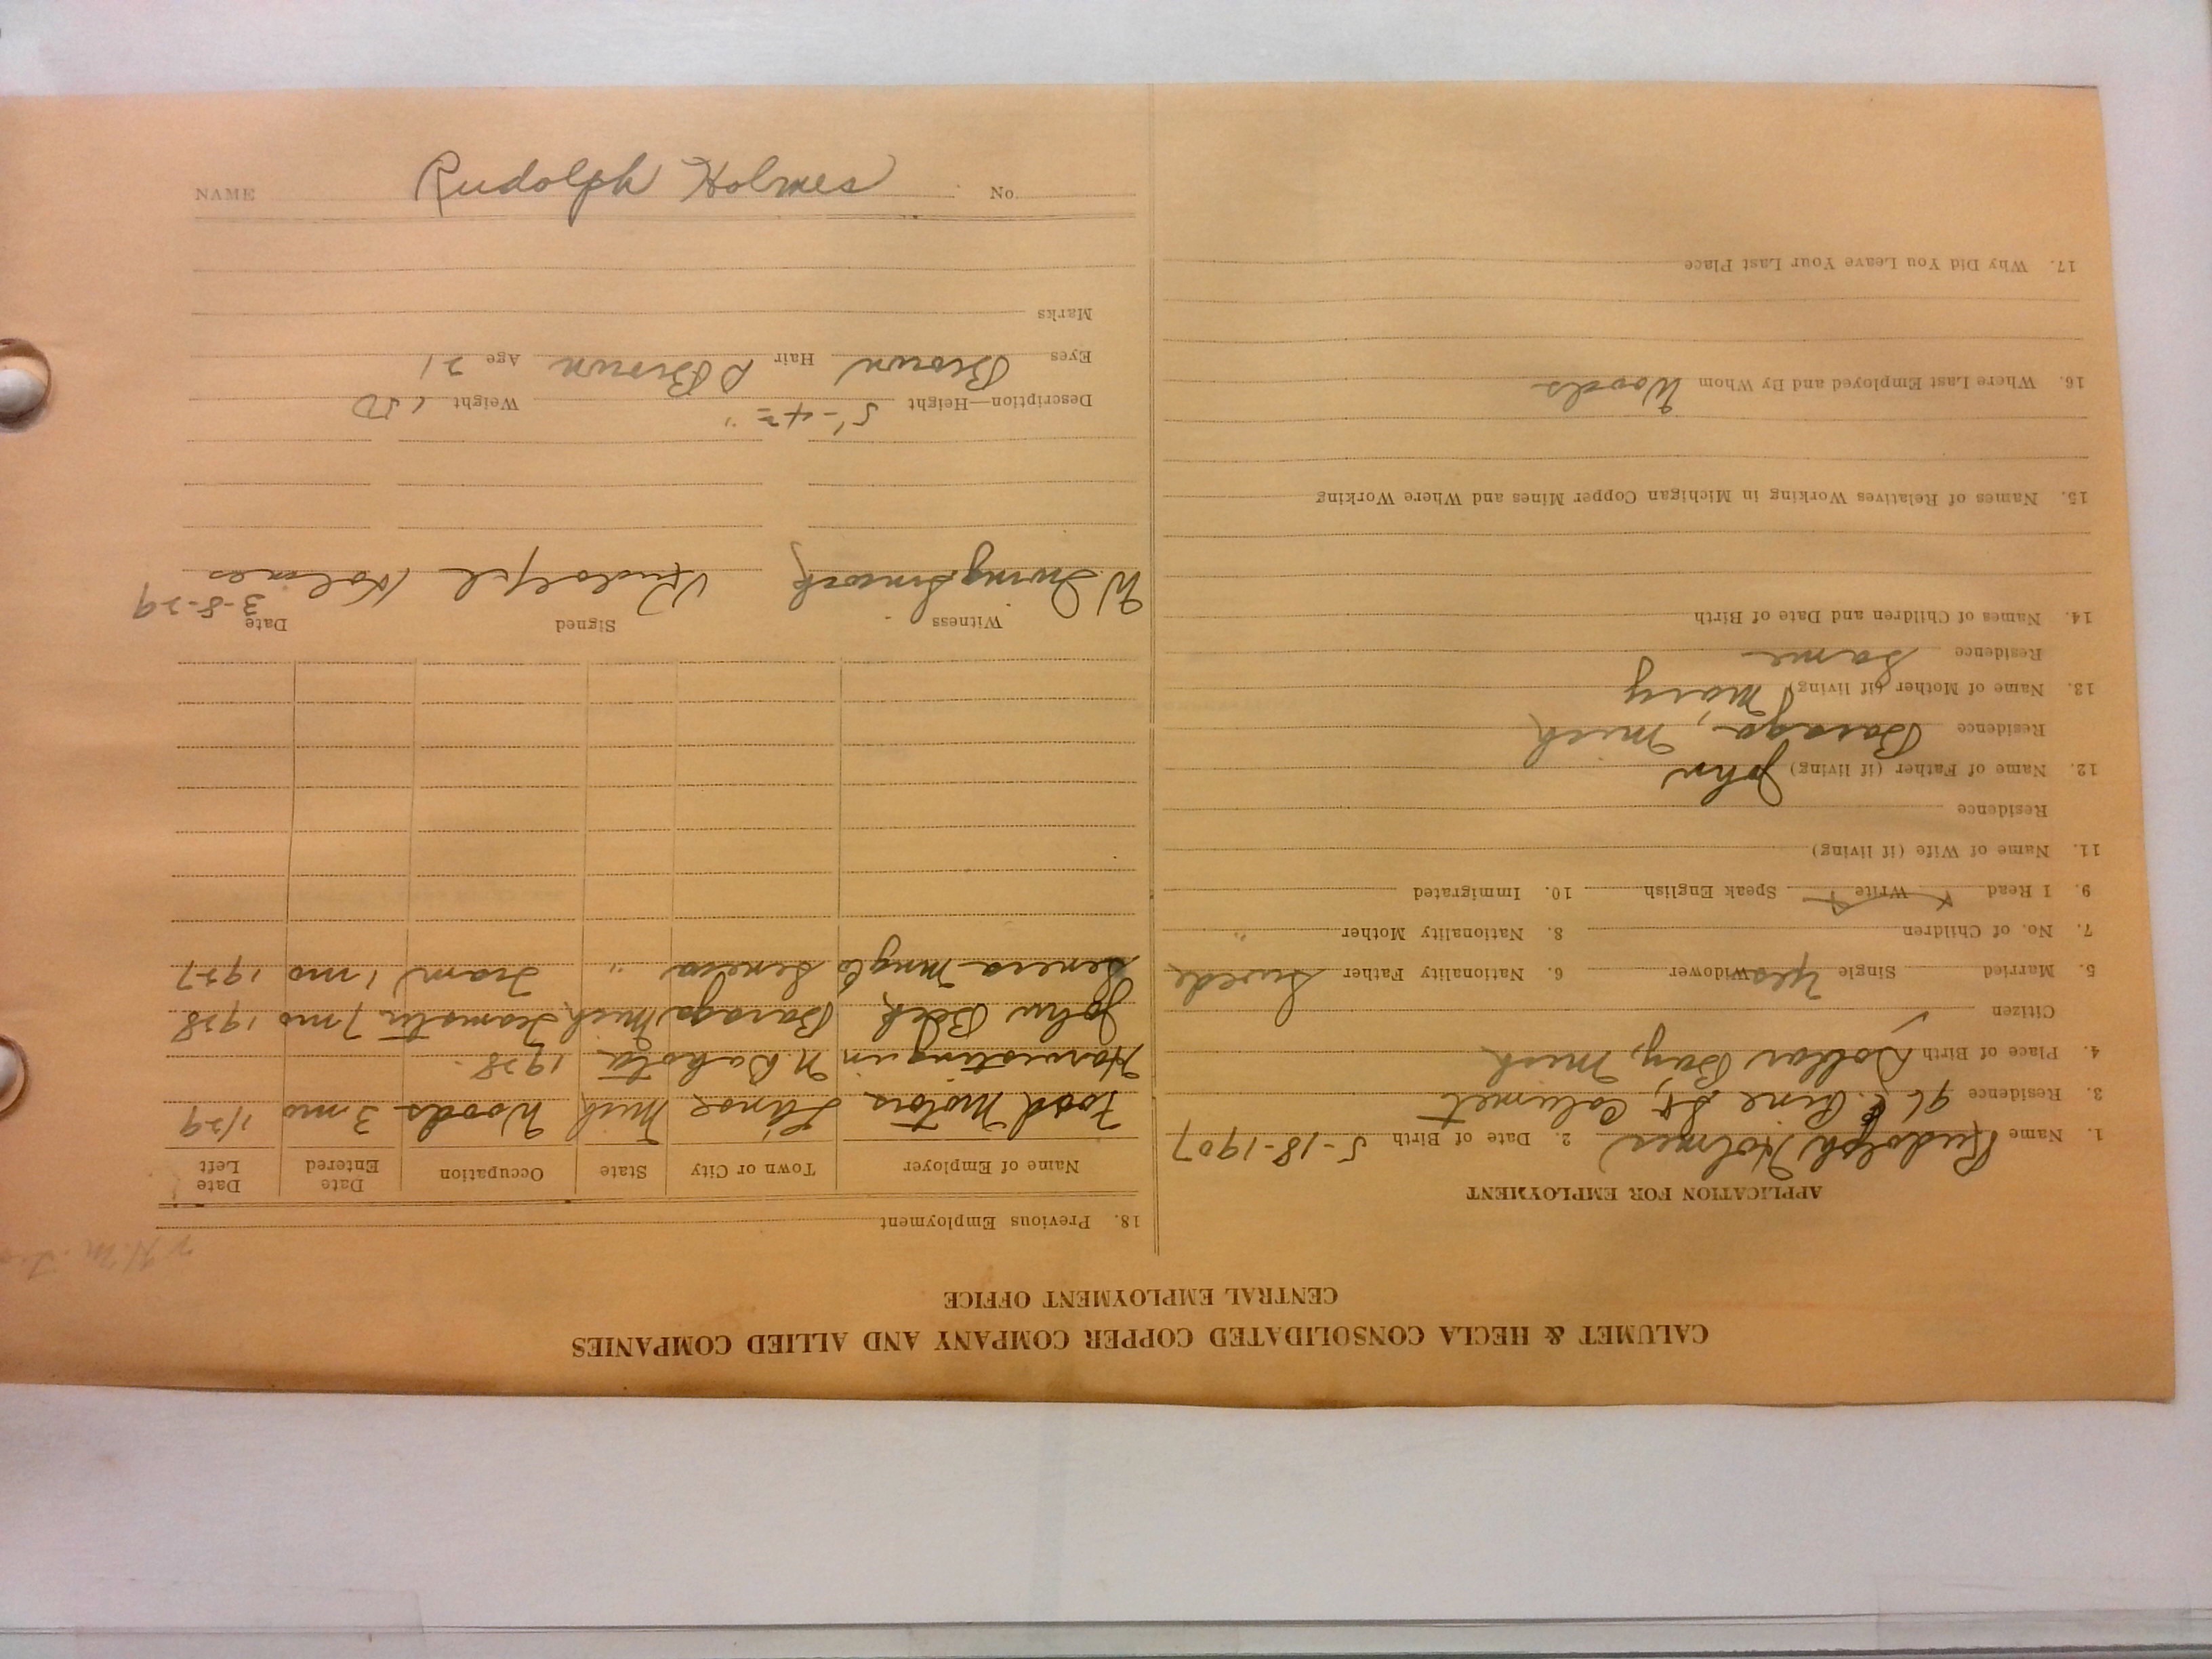 CALUMET & HECLA CONSOLIDATED COPPER COMPANY AND ALLIED COMPANIES
CENTRAL EMPLOYMENT OFFICE
APPLICATION FOR EMPLOYMENT
1. Name Rudolph Holmes 2. Date of Birth 5-18-1907
3. Residence 96 E. Pine St, Calumet
4. Place of Birth Dollar Bay, Mich
Citizen ✓
5. Married Single Yes Widower 6. Nationality Father Swede
7. No. of Children 8. Nationality Mother "
9. I Read x Write x Speak English 10. Immigrated
11. Name of Wife (if living)
Residence
12. Name of Father (if living) John
Residence Baraga, Mich
13. Name of Mother (if living) Mary
Residence Same
14. Names of Children and Date of Birth
15. Names of Relatives Working in Michigan Copper Mines and Where Working
16. Where Last Employed and By Whom Woods
17. Why Did You Leave Your Last Place
18. Previous Employment
Name of Employer Town or City State Occupation Date Entered Date Left
Ford Motors L'anse Mich Woods 3 mo 1/29
Harvesting in N. Dakota 1928.
John Beck Baraga Mich Teamster 7 mo 1928
Seneca Mng Co Seneca " Tram 1 mo 1927
Witness Signed Date 3-8-29
W. Irving Rudolph Holmes
Description—Height 5'-4" Weight 150
Eyes Brown Hair D Brown Age 21
Marks
NAME Rudolph Holmes No.